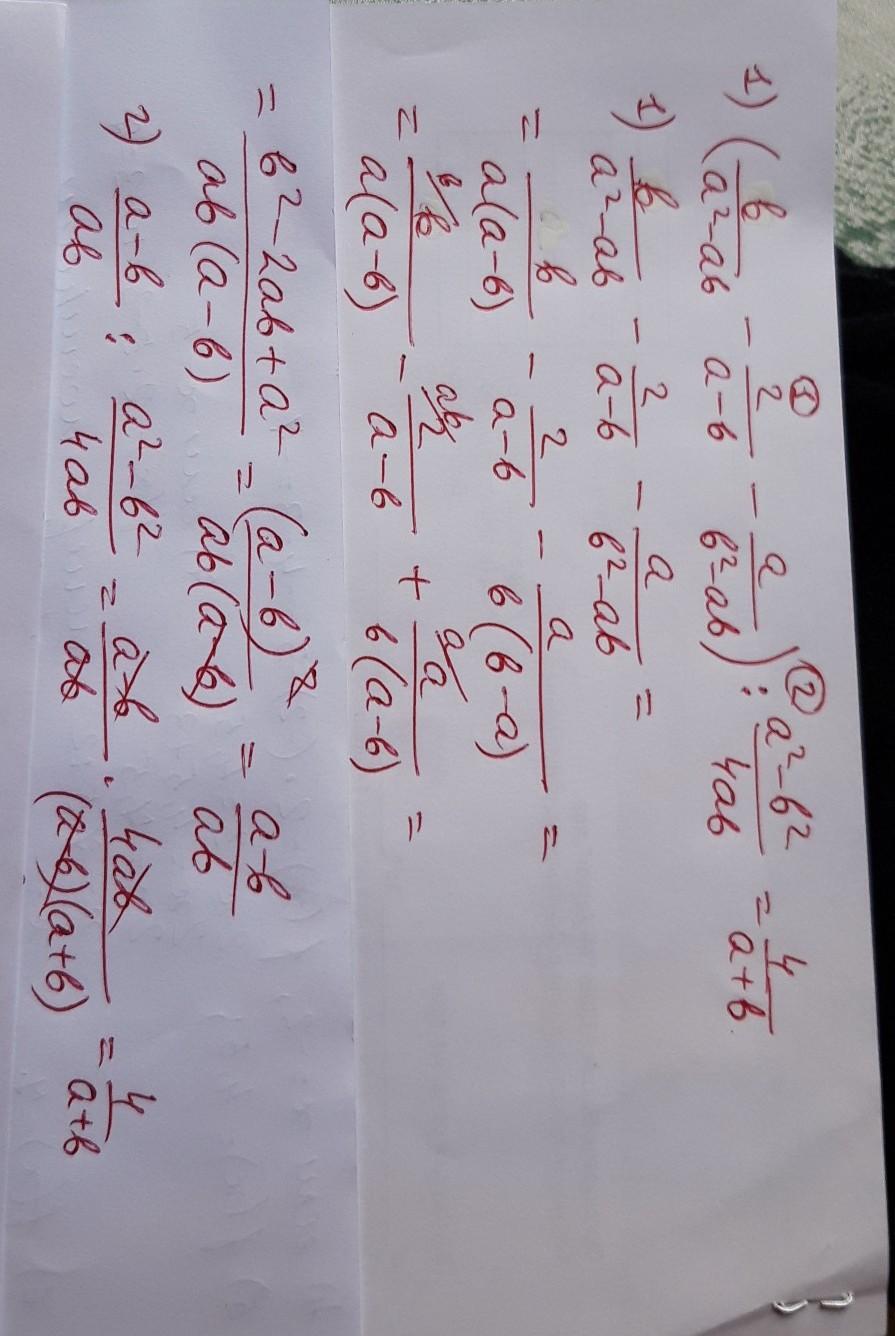 1) (b/(a²-ab) - 2/(a-b) - a/(b²-ab)) : (a²-b²)/4ab = 4/(a+b)
① ②
1) b/(a²-ab) - 2/(a-b) - a/(b²-ab) =
= b/(a(a-b)) - 2/(a-b) - a/(b(b-a)) =
= ᵇ/b/(a(a-b)) - ᵃᵇ/2/(a-b) + ᵃ/a/(b(a-b)) =
= (b²-2ab+a²)/(ab(a-b)) = (a-b)²/(ab(a-b)) = (a-b)/ab
2) (a-b)/ab : (a²-b²)/4ab = (a-b)/ab · 4ab/((a-b)(a+b)) = 4/(a+b)